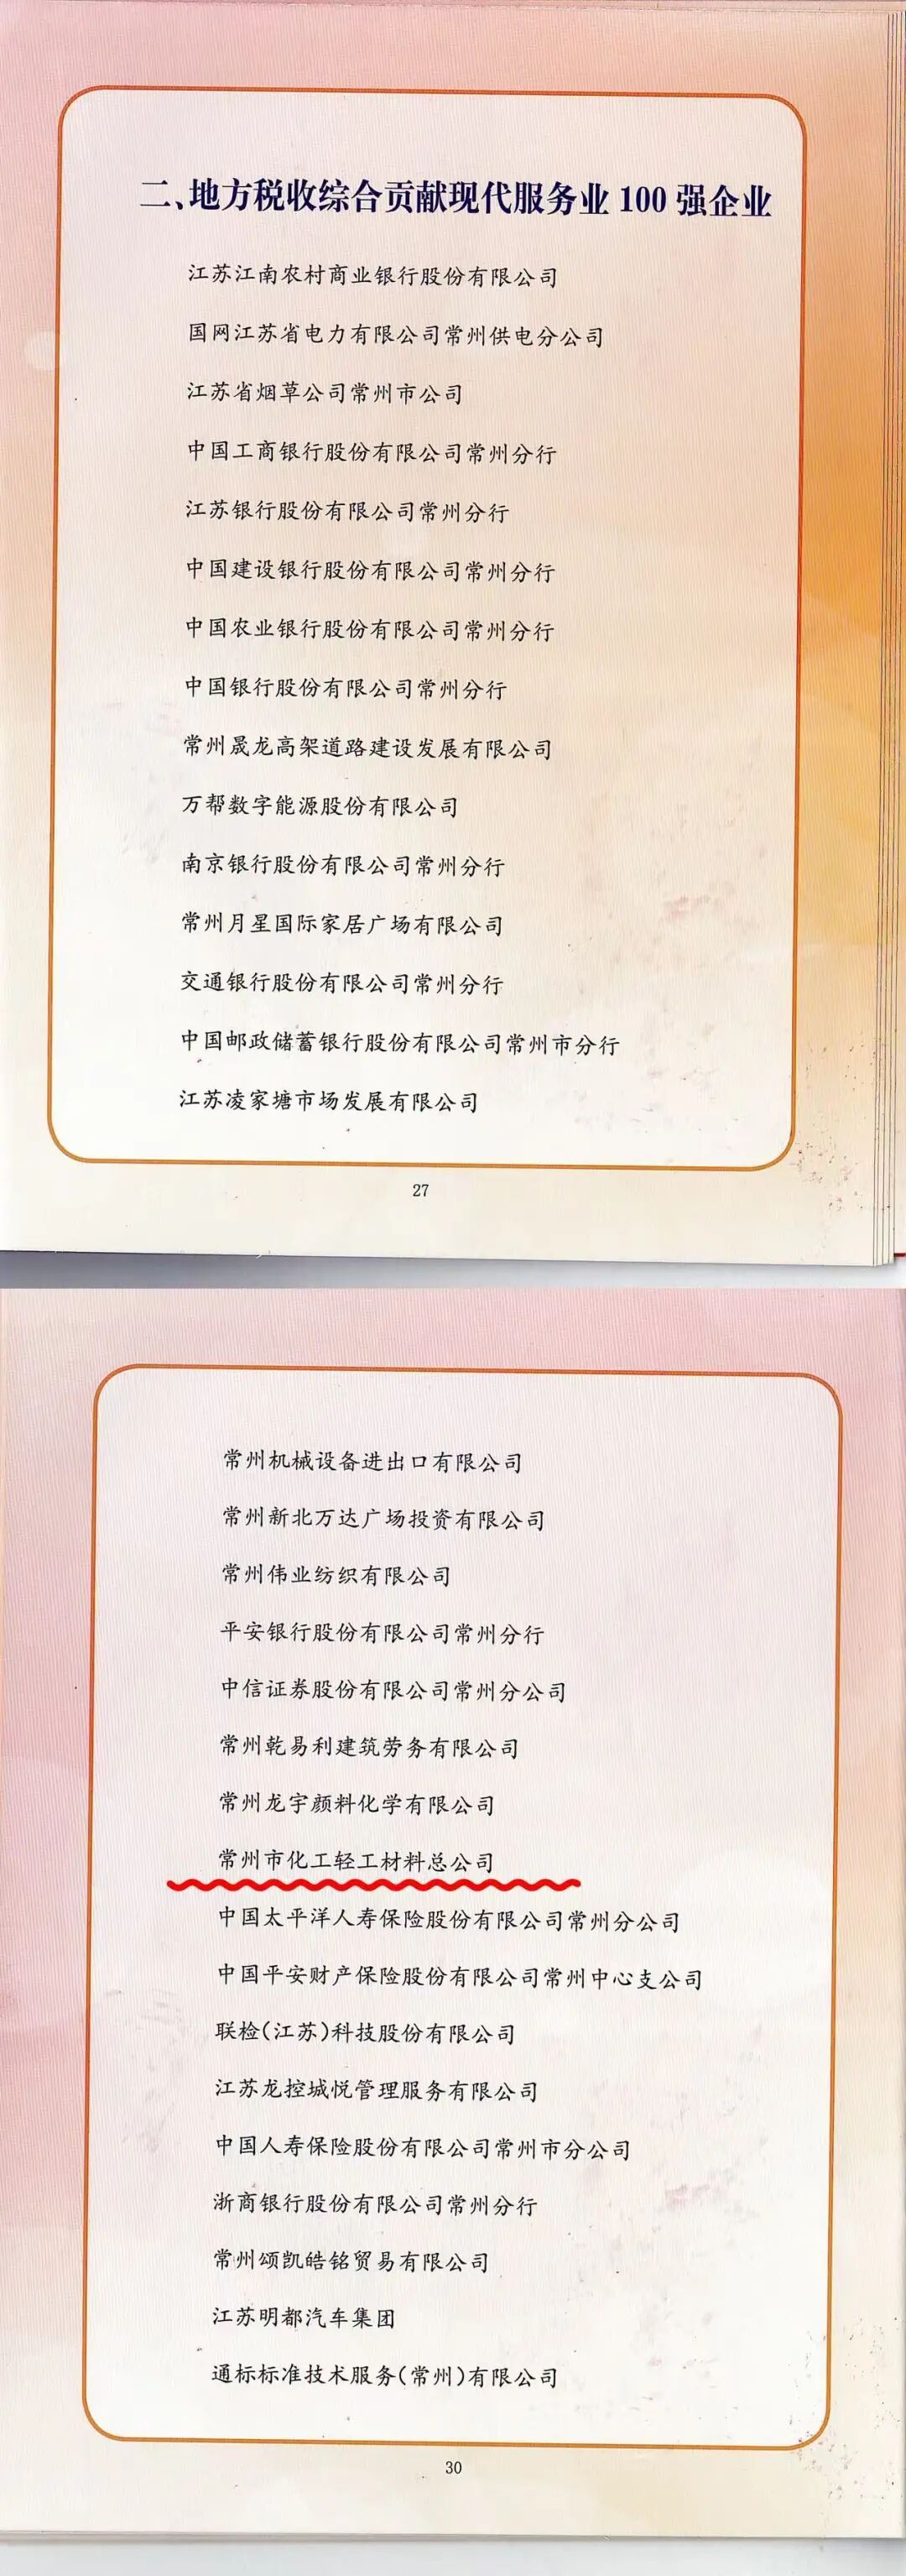 二、地方税收综合贡献现代服务业 100 强企业
江苏江南农村商业银行股份有限公司
国网江苏省电力有限公司常州供电分公司
江苏省烟草公司常州市公司
中国工商银行股份有限公司常州分行
江苏银行股份有限公司常州分行
中国建设银行股份有限公司常州分行
中国农业银行股份有限公司常州分行
中国银行股份有限公司常州分行
常州晟龙高架道路建设发展有限公司
万帮数字能源股份有限公司
南京银行股份有限公司常州分行
常州月星国际家居广场有限公司
交通银行股份有限公司常州分行
中国邮政储蓄银行股份有限公司常州市分行
江苏凌家塘市场发展有限公司
27
常州机械设备进出口有限公司
常州新北万达广场投资有限公司
常州伟业纺织有限公司
平安银行股份有限公司常州分行
中信证券股份有限公司常州分公司
常州乾易利建筑劳务有限公司
常州龙宇颜料化学有限公司
常州市化工轻工材料总公司
中国太平洋人寿保险股份有限公司常州分公司
中国平安财产保险股份有限公司常州中心支公司
联检(江苏)科技股份有限公司
江苏龙控城悦管理服务有限公司
中国人寿保险股份有限公司常州市分公司
浙商银行股份有限公司常州分行
常州颂凯皓铭贸易有限公司
江苏明都汽车集团
通标标准技术服务(常州)有限公司
30